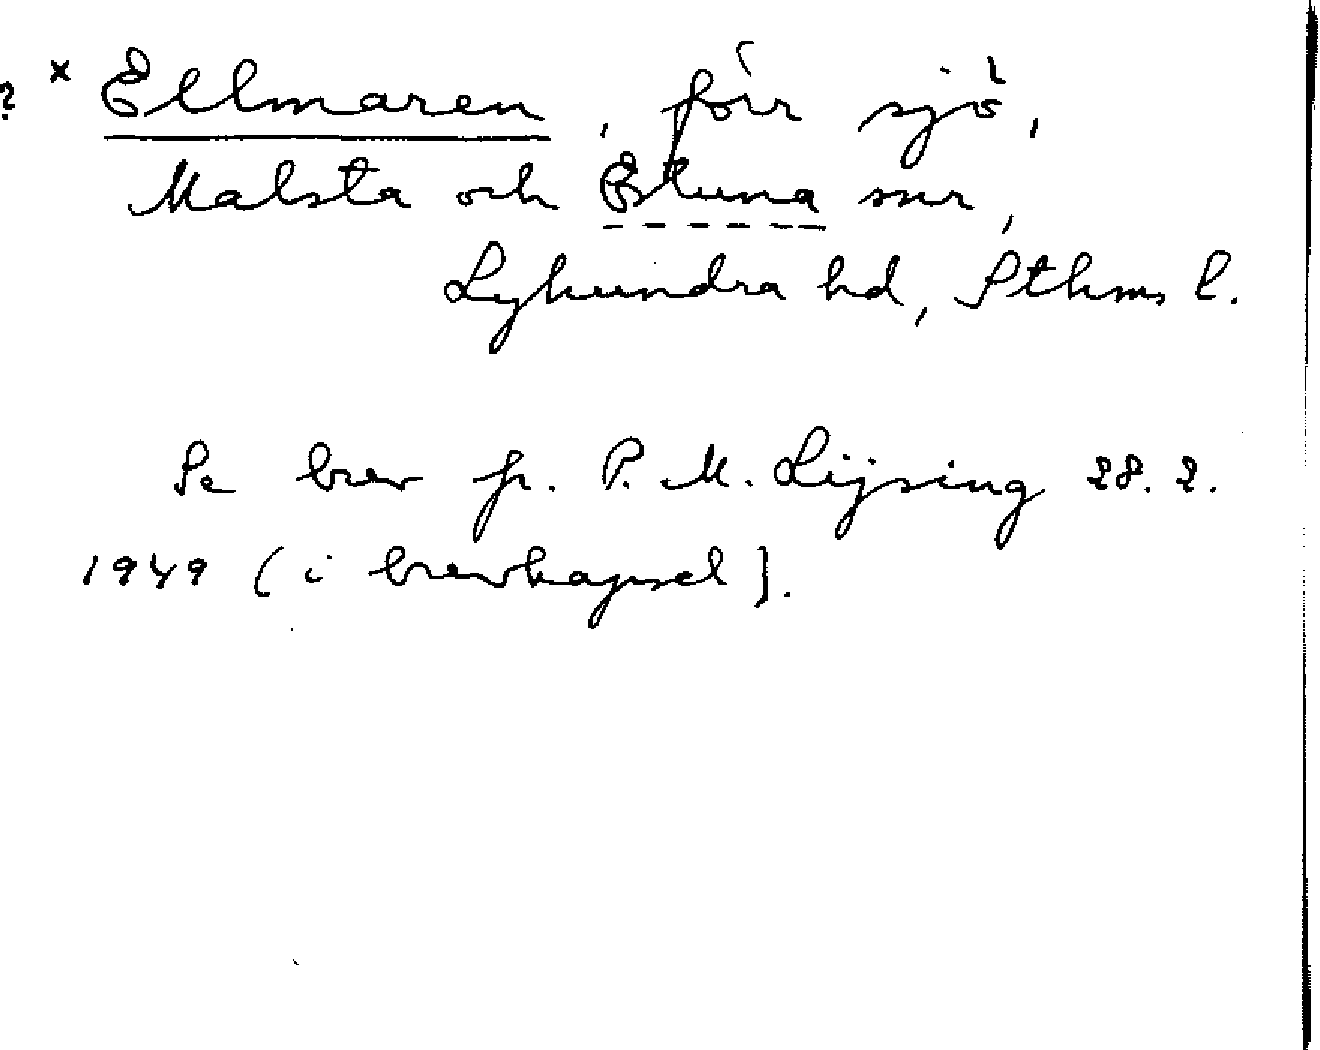 ? × Ellmaren, förr sjö,
Malsta och Estuna snr,
Lyhundra hd, Sthms l.
Se brev fr. P. M. Lijsing 28. 2.
1949 (i brevkapsel).